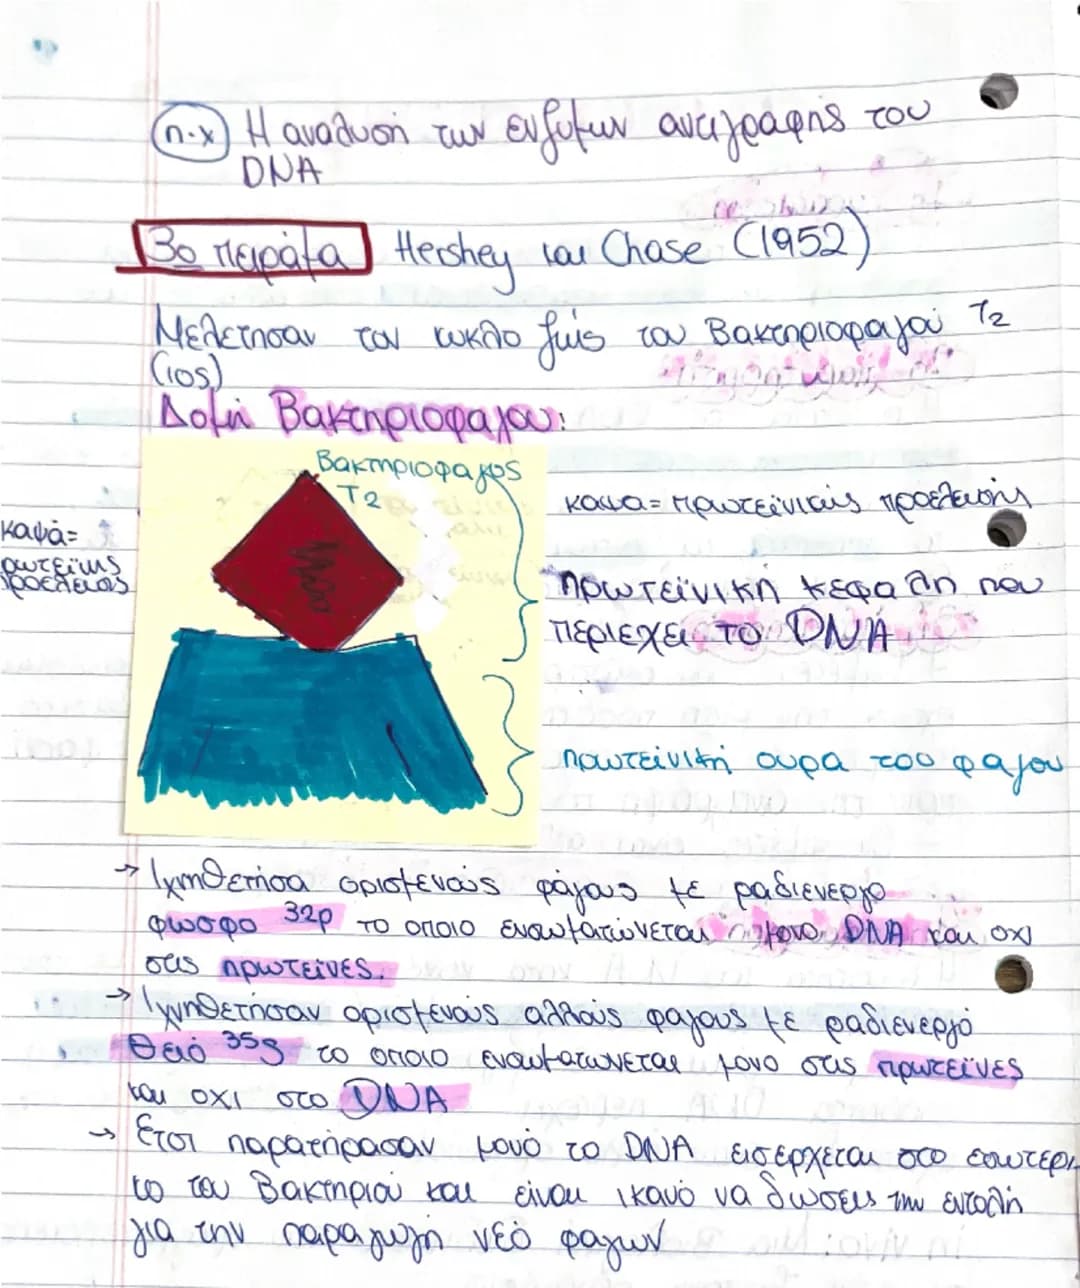 π.χ Η αναλυση των ενζυμων αντιγραφης του
DNA
3ο πείραμα Hershey και Chase (1952)
Μελετησαν τον κυκλο ζωής του Βακτηριοφαγού T2
(ιος)
Δομή Βακτηριοφαγου:
Βακτηριοφαγος
T2
καψα= πρωτεϊνικής προελευσής
καψά=
ρωτεϊκης
προελευσς
πρωτεϊνική κεφαλη που
περιεχει το DNA
πρωτεϊνική ουρα του φαγου
→ Ιχνηθετήσα ορισμενούς φάγους με ραδιενεργο
φωσφο 32p το οποιο ενσωματώνεται μονο DNA και οχι
στις πρωτεΐνες.
→ Ιχνηθετήσαν ορισμενούς αλλούς φαγους με ραδιενεργό
θειό 35S το οποιο ενσωματωνεται μονο στις πρωτεΐνες
και οχι στο DNA
→ Ετσι παρατήρασαν μονό το DNA εισερχεται στο εσωτερι
κο του Βακτηριού και είναι ικανό να δωσει την εντολή
για την παραγωγή νεό φαγων